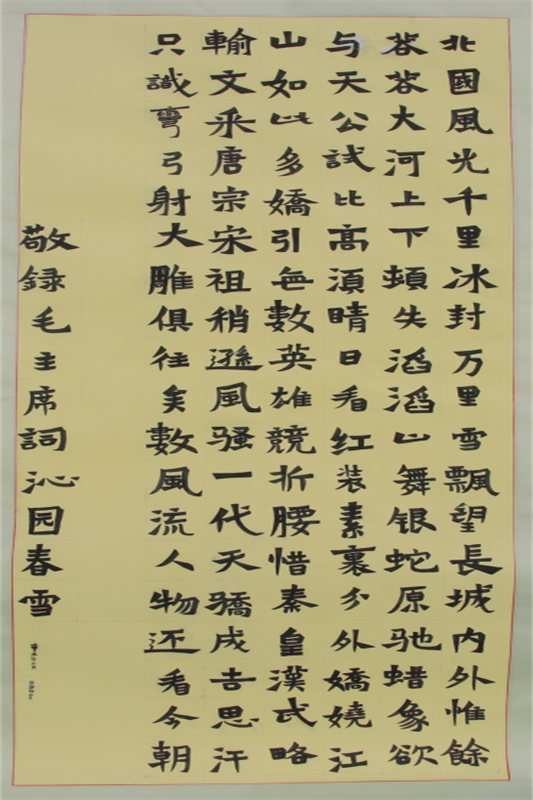 北國風光千里冰封万里雪飄望長城内外惟餘
莽莽大河上下頓失滔滔山舞银蛇原驰蜡象欲
与天公試比高須晴日看红装素裹分外嬌嬈江
山如此多嬌引無數英雄競折腰惜秦皇漢武略
輸文采唐宗宋祖稍遜風骚一代天骄成吉思汗
只識彎弓射大雕俱往矣數風流人物还看今朝
敬録毛主席詞沁园春雪